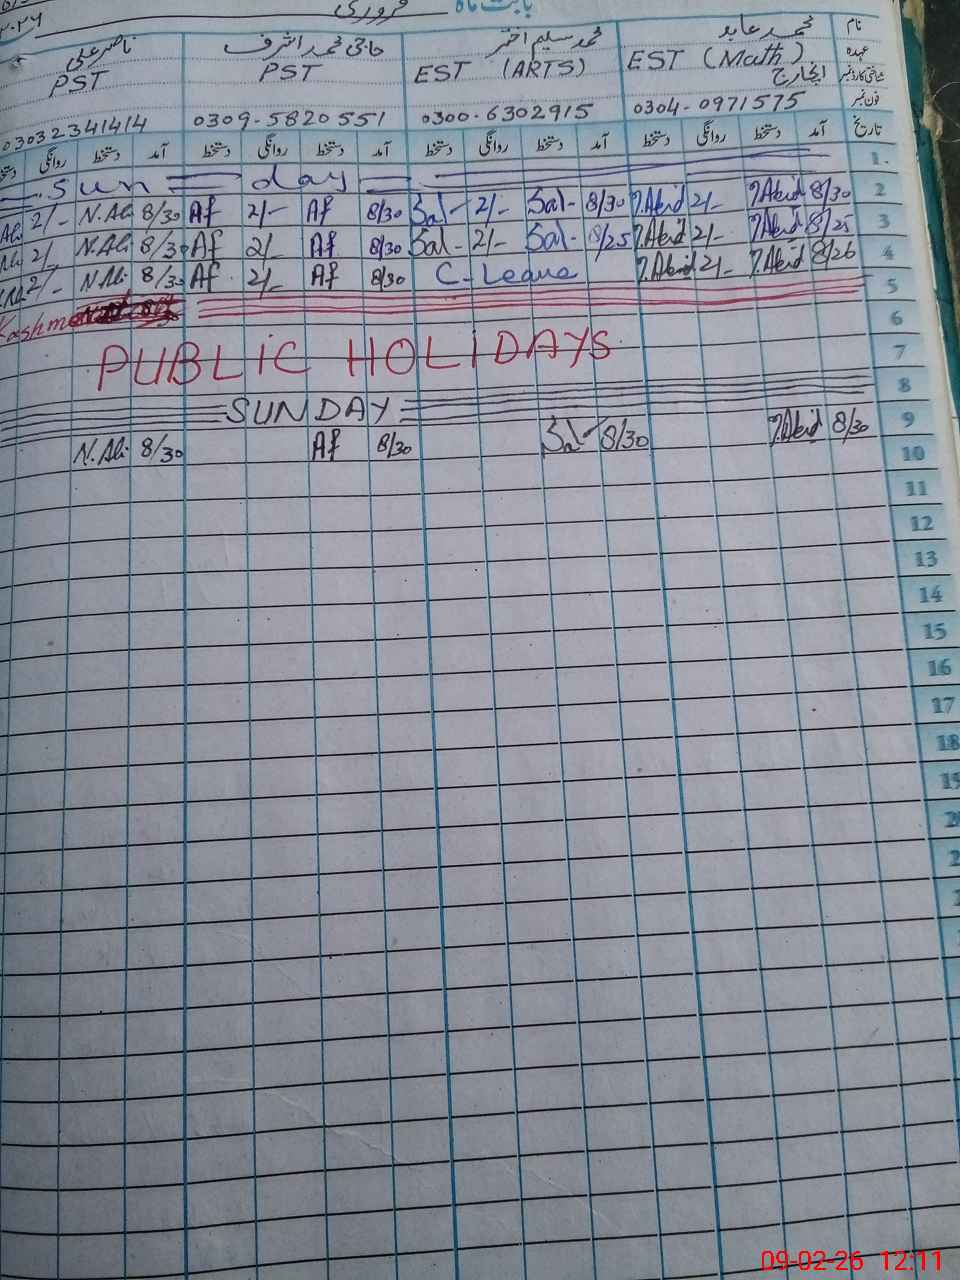 بابت ماہ فروری
نام محمد عابد محمد سلیم اختر حاجی محمد اشرف ناصر علی
عہدہ EST (Math) EST (ARTS) PST PST
شناختی کارڈ نمبر انچارج
فون نمبر 0304-0971575 0300-6302915 0309-5820551 03032341414
تاریخ آمد دستخط روانگی دستخط آمد دستخط روانگی دستخط آمد دستخط روانگی دستخط آمد دستخط روانگی
1. Sun day
2 8/30 M.Abid 2/- M.Abid 8/30 Sal 2/- Sal 8/30 Af 2/- Af 8/30 N.Ali 2/- Ali
3 8/25 M.Abid 2/- M.Abid 8/25 Sal 2/- Sal 8/30 Af 2/- Af 8/30 N.Ali 2/-
4 8/26 M.Abid 2/- M.Abid C-Leave 8/30 Af 2/- Af 8/30 N.Ali 2/-
5
6
PUBLIC HOLIDAYS
7
8 SUNDAY
9 8/30 M.Abid 8/30 Sal 8/30 Af 8/30 N.Ali
10
11
12
13
14
15
16
17
18
09-02-26 12:11